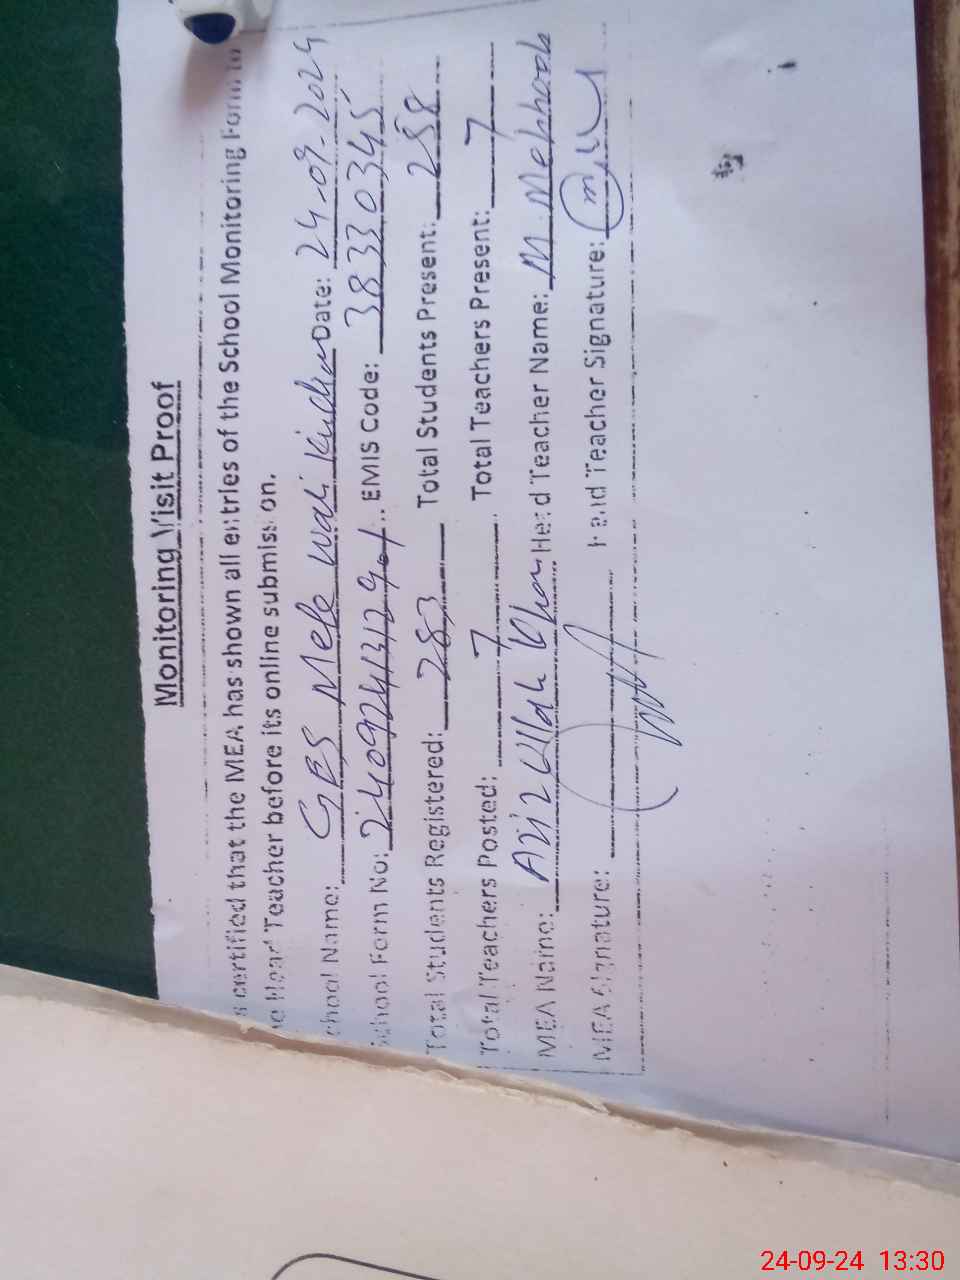 Monitoring Visit Proof
certified that the MEA has shown all entries of the School Monitoring Form to
Head Teacher before its online submission.
School Name: GPS Mele Wali Date: 24-09-2024
School Form No: EMIS Code: 38330345
Total Students Registered: 283 Total Students Present: 258
Total Teachers Posted: 7 Total Teachers Present: 7
MEA Name: Aziz Ullah Khan Head Teacher Name: M.
MEA Signature: Head Teacher Signature:
24-09-24 13:30